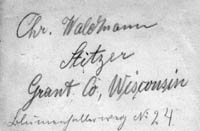 Chr. Waldmann
Stitzer
Grant Co, Wisconsin
Blumenhallerweg No 24